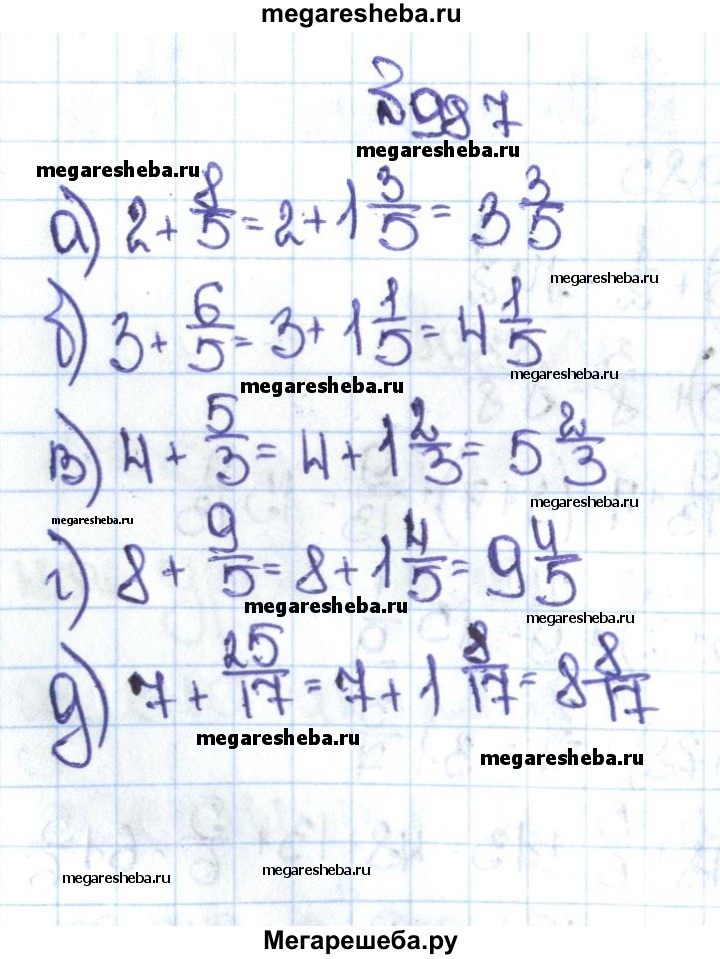 megaresheba.ru
№987
megaresheba.ru
megaresheba.ru
а) 2 + 8/5 = 2 + 1 3/5 = 3 3/5
megaresheba.ru
б) 3 + 6/5 = 3 + 1 1/5 = 4 1/5
megaresheba.ru
megaresheba.ru
в) 4 + 5/3 = 4 + 1 2/3 = 5 2/3
megaresheba.ru
megaresheba.ru
г) 8 + 9/5 = 8 + 1 4/5 = 9 4/5
megaresheba.ru
megaresheba.ru
д) 7 + 25/17 = 7 + 1 8/17 = 8 8/17
megaresheba.ru
megaresheba.ru
megaresheba.ru
megaresheba.ru
Мегарешеба.ру